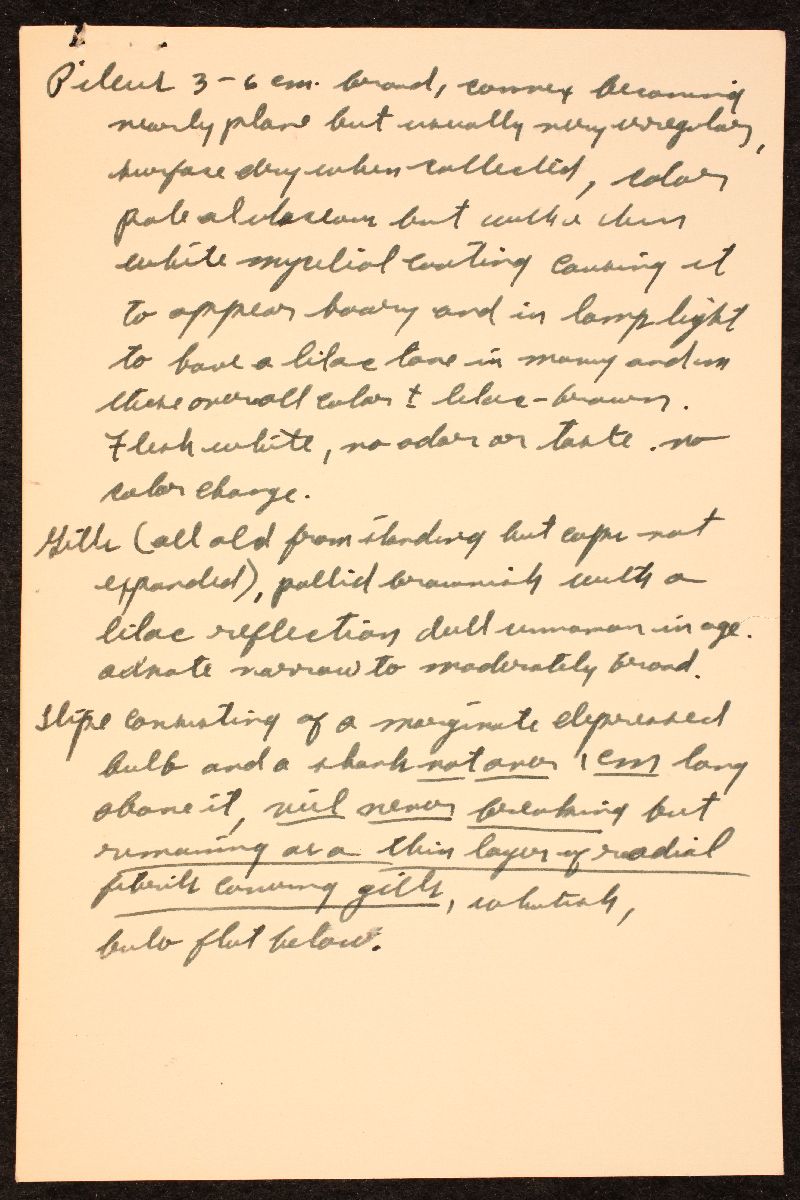 Pileus 3-6 cm. broad, convex becoming
nearly plane but usually very irregular,
surface dry when collected, color
pale alutaceous but with a thin
white mycelial coating causing it
to appear hoary and in lamp light
to have a lilac tone in many and in
these overall color ± lilac-brown.
Flesh white, no odor or taste. no
color change.
Gills (all old from standing but caps not
expanded), pallid brownish with a
lilac reflection dull cinnamon in age.
adnate narrow to moderately broad.
Stipe consisting of a marginate depressed
bulb and a shank not over 1 cm long
above it, veil never breaking but
remaining as a thin layer of radial
fibrils covering gills, whitish,
bulb flat below.